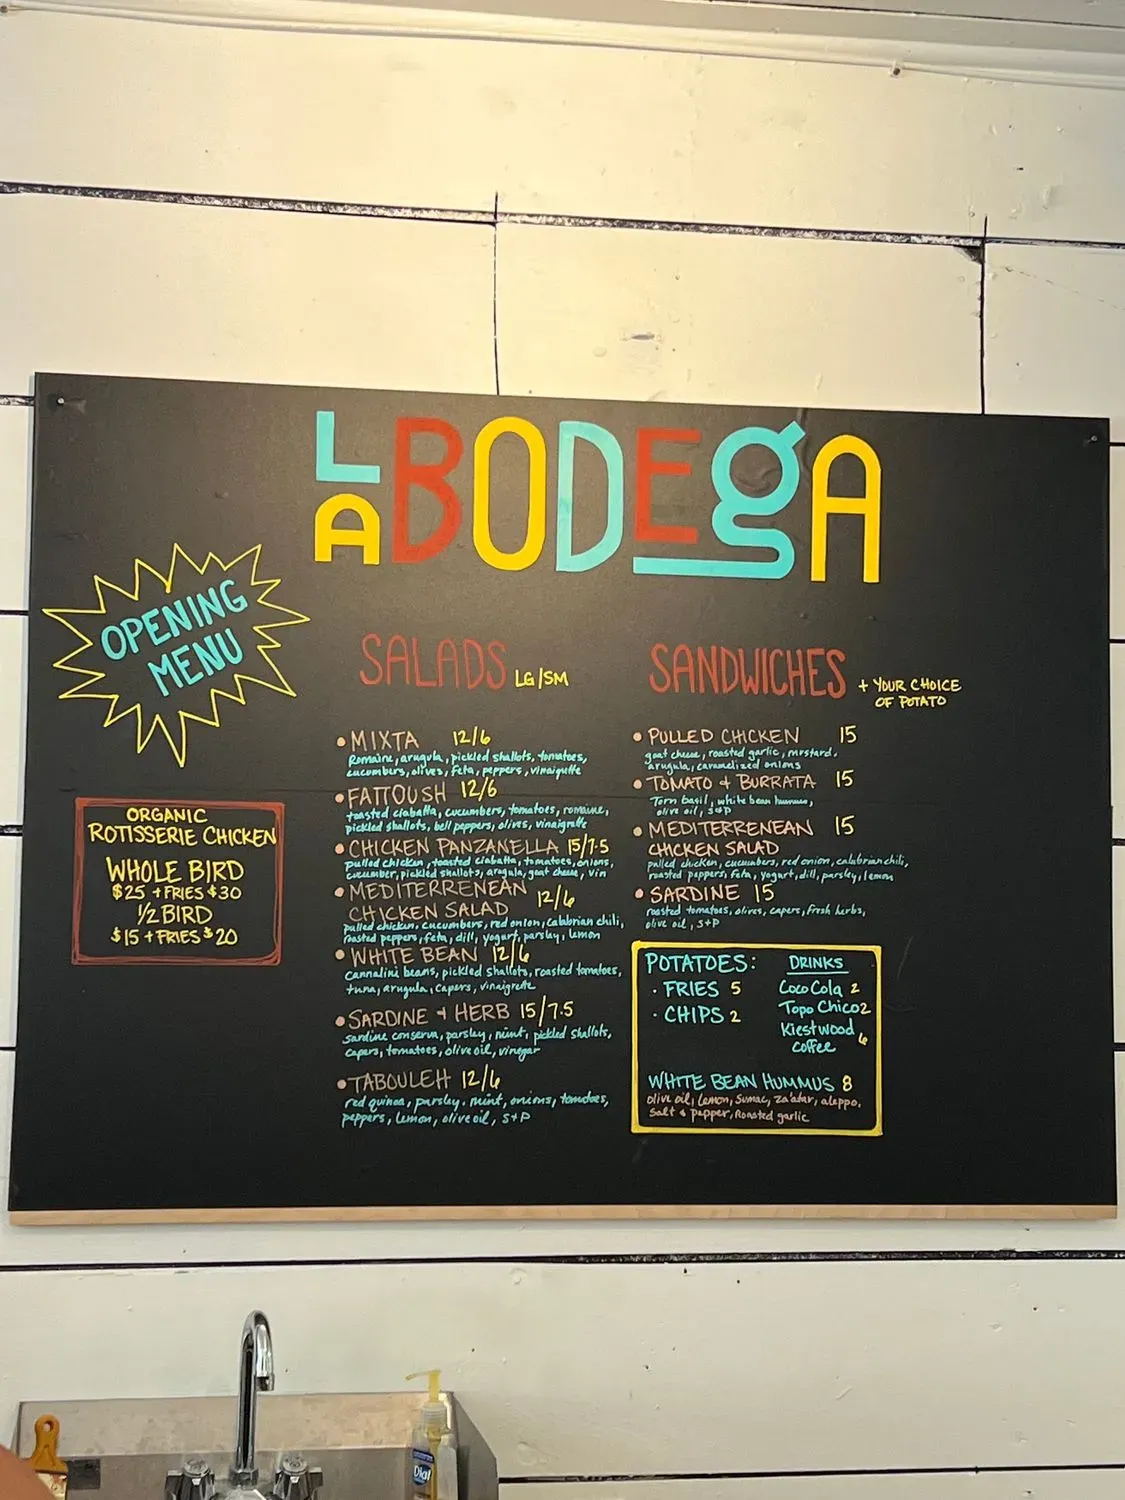 LA BODEGA
OPENING
MENU
ORGANIC
ROTISSERIE CHICKEN
WHOLE BIRD
$25 + FRIES $30
1/2 BIRD
$15 + FRIES $20
SALADS LG/SM
• MIXTA 12/6
Romaine, arugula, pickled shallots, tomatoes,
cucumbers, olives, feta, peppers, vinaigrette
• FATTOUSH 12/6
toasted ciabatta, cucumbers, tomatoes, romaine,
pickled shallots, bell peppers, olives, vinaigrette
• CHICKEN PANZANELLA 15/7.5
pulled chicken, toasted ciabatta, tomatoes, onions,
cucumber, pickled shallots, arugula, goat cheese, vin
• MEDITERRENEAN 12/6
CHICKEN SALAD
pulled chicken, cucumbers, red onion, calabrian chili,
roasted peppers, feta, dill, yogurt, parsley, lemon
• WHITE BEAN 12/6
cannalini beans, pickled shallots, roasted tomatoes,
tuna, arugula, capers, vinaigrette
• SARDINE + HERB 15/7.5
sardine conserva, parsley, mint, pickled shallots,
capers, tomatoes, olive oil, vinegar
• TABOULEH 12/6
red quinoa, parsley, mint, onions, tomatoes,
peppers, lemon, olive oil, S+P
SANDWICHES + YOUR CHOICE
OF POTATO
• PULLED CHICKEN 15
goat cheese, roasted garlic, mustard,
arugula, caramelized onions
• TOMATO + BURRATA 15
Torn basil, white bean hummus,
olive oil, S+P
• MEDITERRENEAN 15
CHICKEN SALAD
pulled chicken, cucumbers, red onion, calabrian chili,
roasted peppers, feta, yogurt, dill, parsley, lemon
• SARDINE 15
roasted tomatoes, olives, capers, fresh herbs,
olive oil, S+P
POTATOES:
· FRIES 5
· CHIPS 2
DRINKS
Coco Cola 2
Topo Chico 2
Kiestwood
coffee 6
WHITE BEAN HUMMUS 8
olive oil, Lemon, Sumac, za'atar, aleppo,
salt + pepper, Roasted garlic
Dial